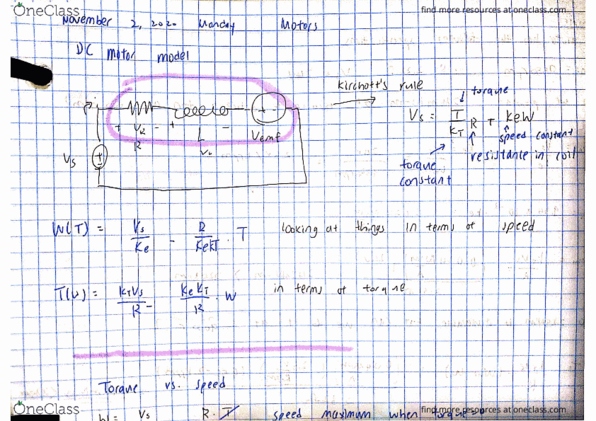 OneClass
find more resources at oneclass.com
November 2, 2020 Monday Motors
DC motor model
Kirchoff's rule
torque
Vs = T/KT R + keW
speed constant
resistance in coil
torque constant
+ VR - + L -
R
Vemf
Vs
W(T) = Vs/Ke - R/KeKT · T looking at things in terms of speed
T(W) = KTVs/R - KeKT/R · W in terms of torque
Torque vs. speed
W= Vs R·T speed maximum when torque
OneClass
find more resources at oneclass.com